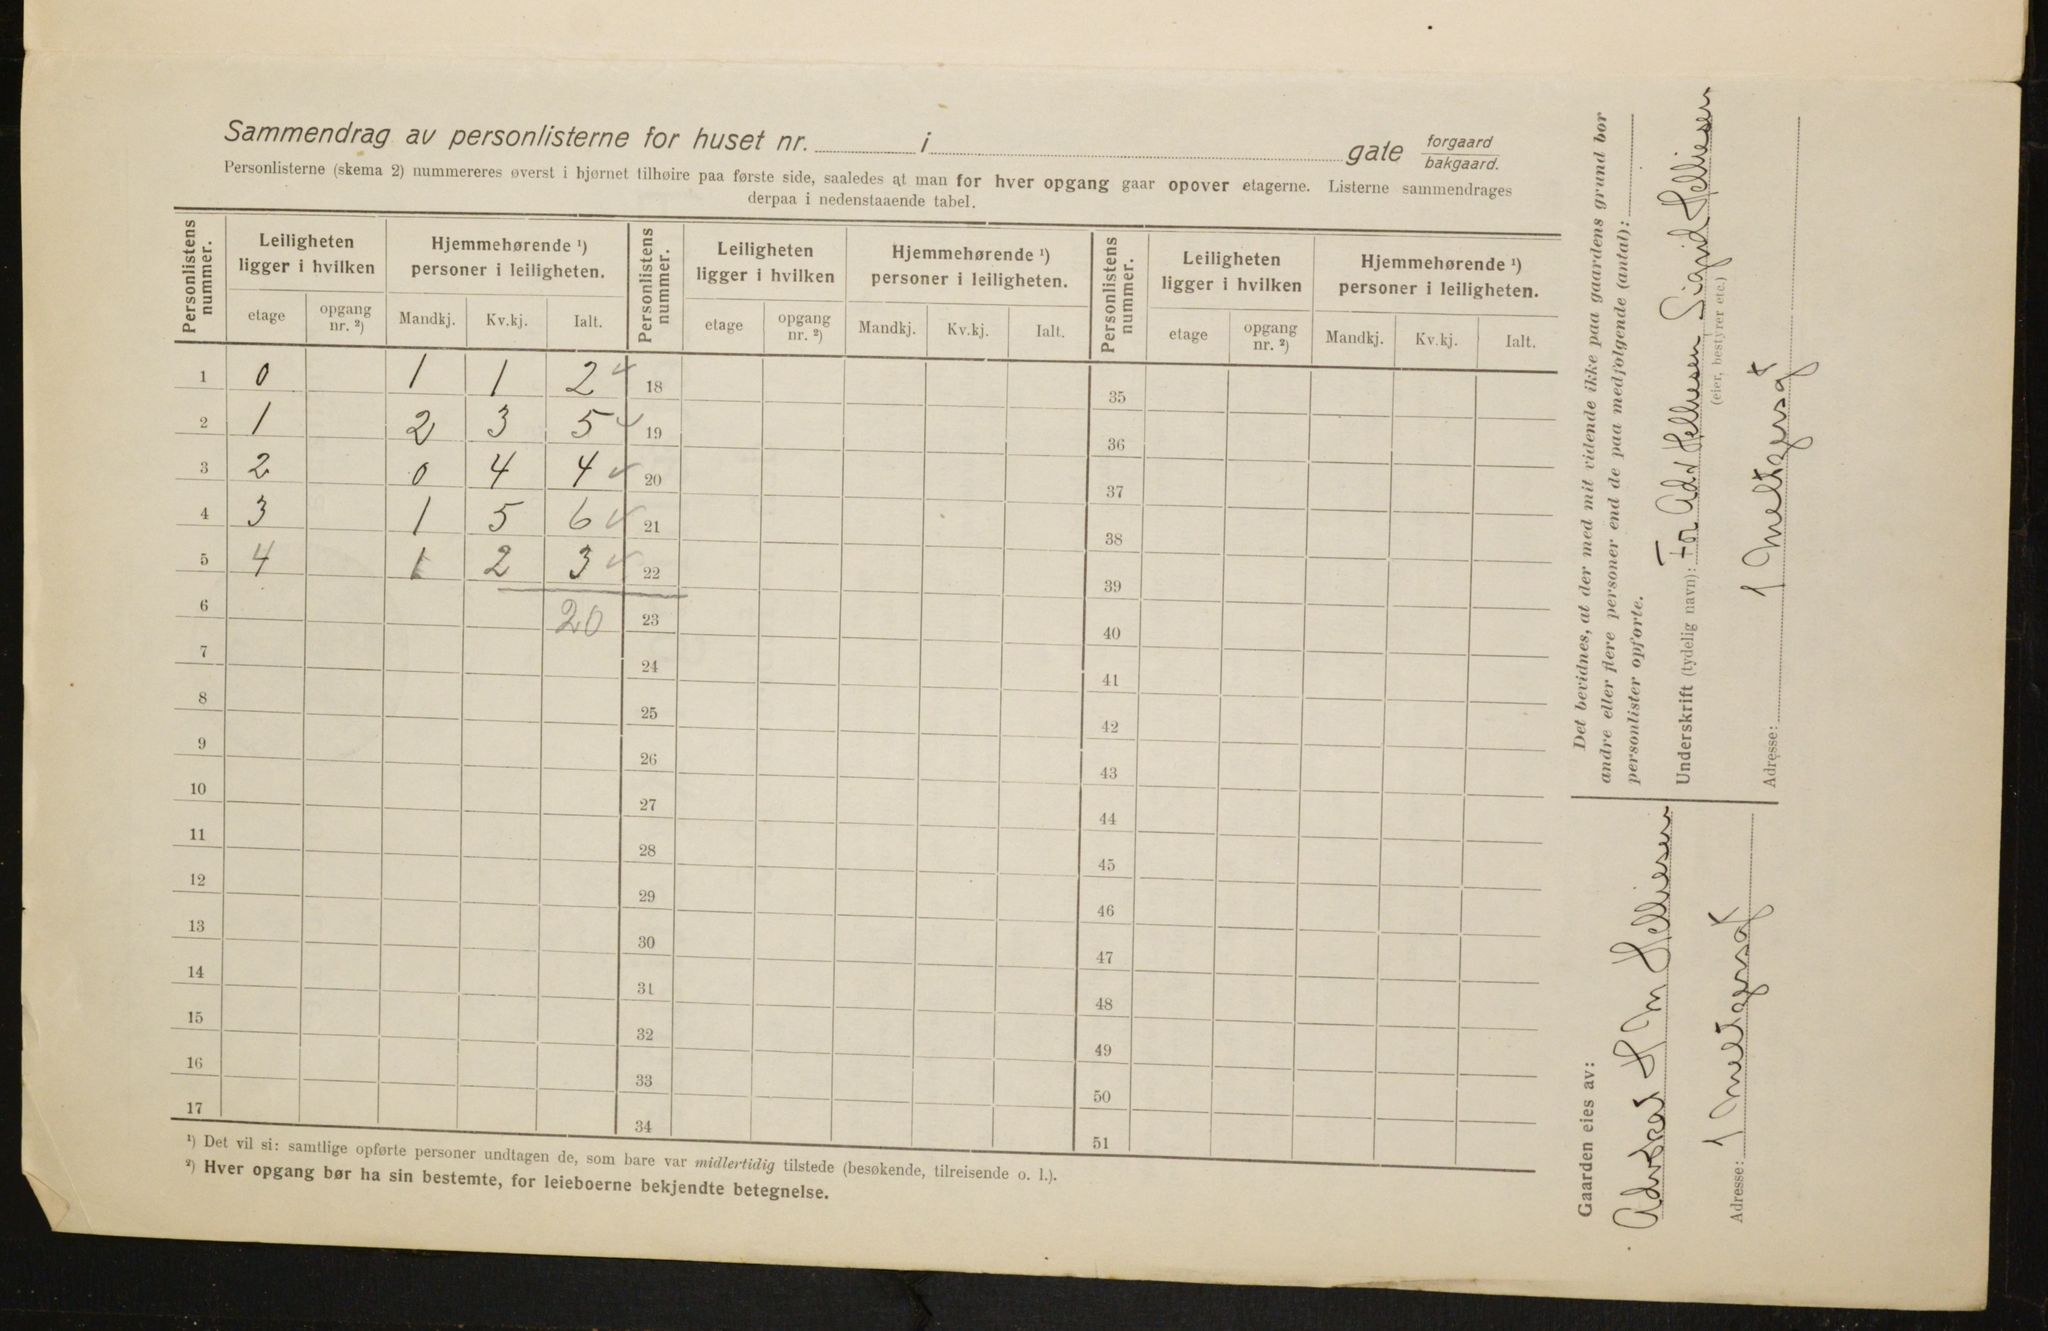 Sammendrag av personlisterne for huset nr. i gate forgaard bakgaard.
Personlisterne (skema 2) nummereres øverst i hjørnet tilhøire paa første side, saaledes at man for hver opgang gaar opover etagerne. Listerne sammendrages
derpaa i nedenstaaende tabel.
Personlistens nummer. Leiligheten ligger i hvilken Hjemmehørende ¹) personer i leiligheten. Personlistens nummer. Leiligheten ligger i hvilken Hjemmehørende ¹) personer i leiligheten. Personlistens nummer. Leiligheten ligger i hvilken Hjemmehørende ¹) personer i leiligheten.
etage opgang nr. ²) Mandkj. Kv.kj. Ialt. etage opgang nr. ²) Mandkj. Kv.kj. Ialt. etage opgang nr. ²) Mandkj. Kv.kj. Ialt.
1 0 1 1 2 ✓ 18 35
2 1 2 3 5 ✓ 19 36
3 2 0 4 4 ✓ 20 37
4 3 1 5 6 ✓ 21 38
5 4 1 2 3 ✓ 22 39
6 20 23 40
7 24 41
8 25 42
9 26 43
10 27 44
11 28 45
12 29 46
13 30 47
14 31 48
15 32 49
16 33 50
17 34 51
¹) Det vil si: samtlige opførte personer undtagen de, som bare var midlertidig tilstede (besøkende, tilreisende o. l.).
²) Hver opgang bør ha sin bestemte, for leieboerne bekjendte betegnelse.
Gaarden eies av:
H M Helliesen
Adresse: 1 Meltzersgt
Det bevidnes, at der med mit vidende ikke paa gaardens grund bor
andre eller flere personer end de paa medfølgende (antal):
personlister opførte.
Underskrift (tydelig navn): For Adv Helliesen Sigrid Helliesen
(eier, bestyrer etc.)
Adresse: 1 Meltzersgt